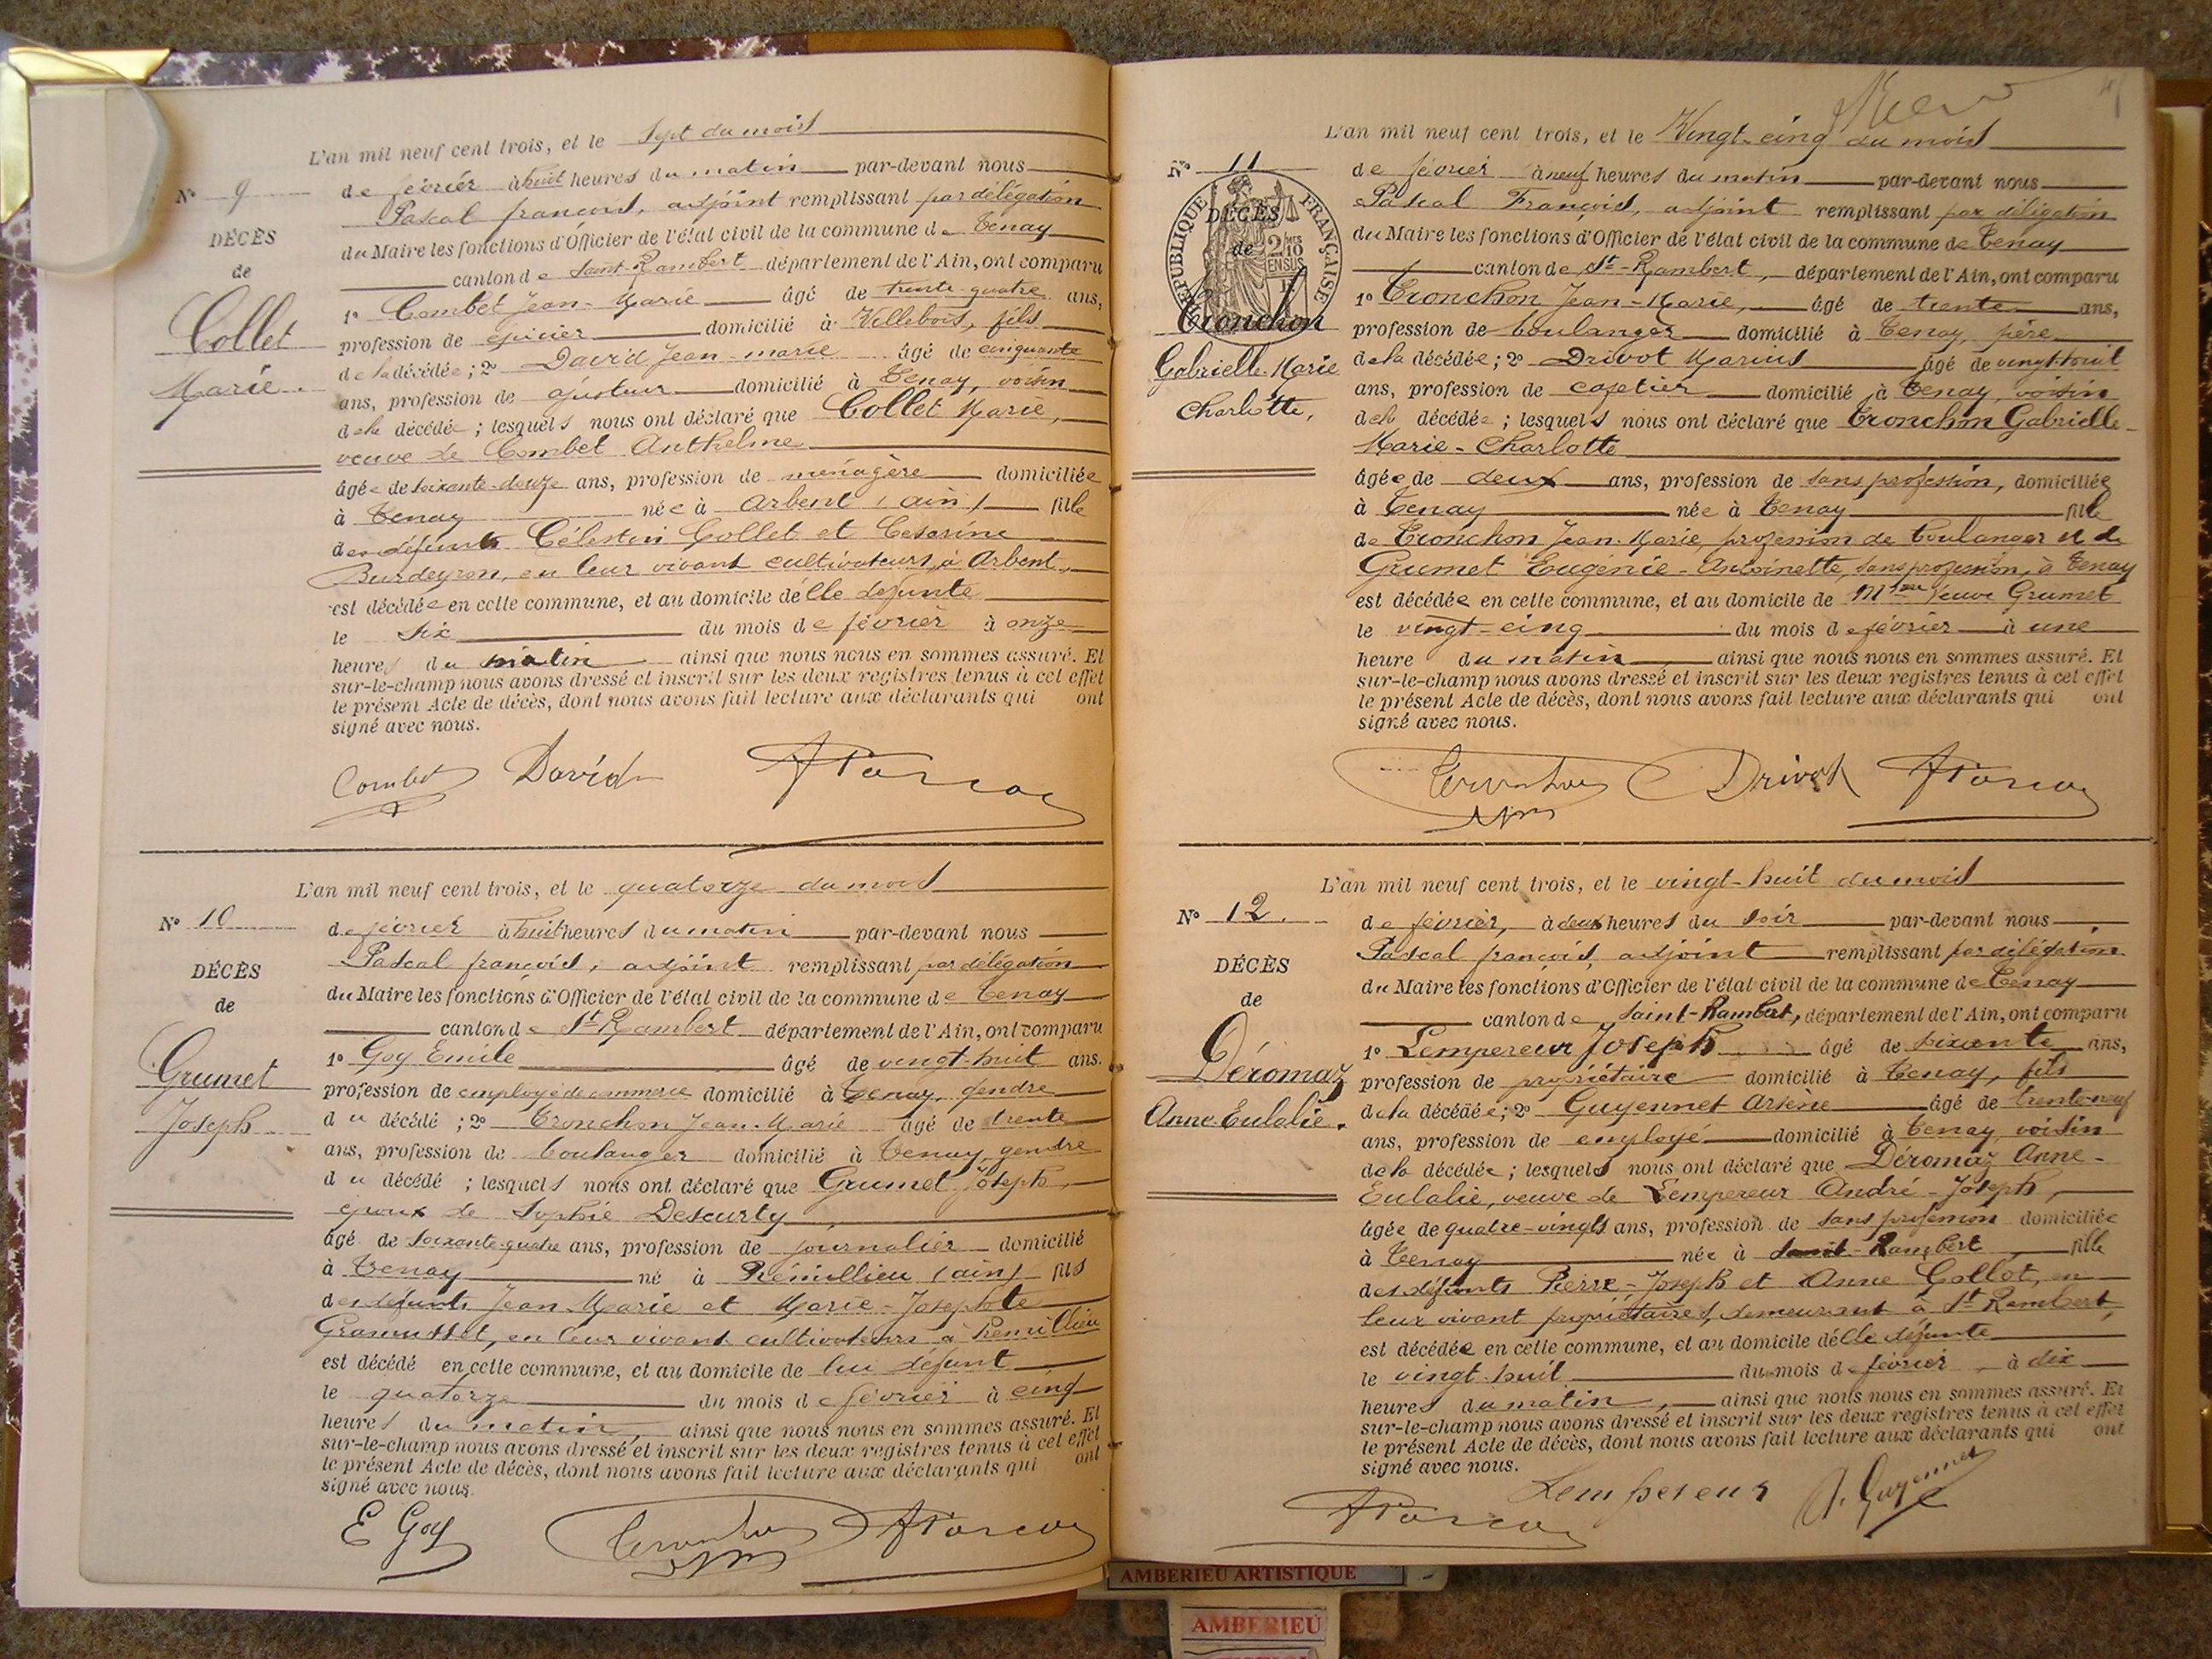 L'an mil neuf cent trois, et le Sept du mois
N° 9
de février à huit heures du matin par-devant nous
Pascal françois, adjoint remplissant par délégation
DÉCÈS
du Maire les fonctions d'Officier de l'état civil de la commune de Tenay
de
canton de Saint-Rambert département de l'Ain, ont comparu
Collet
1° Combet Jean-Marie âgé de trente-quatre ans,
profession de épicier domicilié à Villebois, fils
Marie
de la décédée ; 2° David Jean-marie âgé de cinquante
ans, profession de ajusteur domicilié à Tenay, voisin
de la décédée ; lesquels nous ont déclaré que Collet Marie,
veuve de Combet Anthelme
âgée de soixante-douze ans, profession de ménagère domiciliée
à Tenay née à Arbent (ain) fille
des défunts Célestin Collet et Césarine
Burdeyron, en leur vivant cultivateurs à Arbent,
est décédée en cette commune, et au domicile de elle défunte
le six du mois de février à onze
heures du matin ainsi que nous nous en sommes assuré. Et
sur-le-champ nous avons dressé et inscrit sur les deux registres tenus à cet effet
le présent Acte de décès, dont nous avons fait lecture aux déclarants qui ont
signé avec nous.
Combet David APascal
L'an mil neuf cent trois, et le quatorze du mois
N° 10
de février à huit heures du matin par-devant nous
Pascal françois, adjoint remplissant par délégation
DÉCÈS
du Maire les fonctions d'Officier de l'état civil de la commune de Tenay
de
canton de St-Rambert département de l'Ain, ont comparu
Grumet
1° Goy Emile âgé de vingt-huit ans.
profession de employé de commerce domicilié à Tenay, gendre
Joseph
du décédé ; 2° Tronchon Jean-Marie âgé de trente
ans, profession de boulanger domicilié à Tenay, gendre
du décédé ; lesquels nous ont déclaré que Grumet Joseph,
époux de Sophie Descurty,
âgé de soixante-quatre ans, profession de journalier domicilié
à Tenay né à Prémillieu (ain) fils
des défunts Jean-Marie et Marie-Josephte
en leur vivant cultivateurs à Prémillieu
est décédé en cette commune, et au domicile de lui défunt
le quatorze du mois de février à cinq
heures du matin, ainsi que nous nous en sommes assuré. Et
sur-le-champ nous avons dressé et inscrit sur les deux registres tenus à cet effet
le présent Acte de décès, dont nous avons fait lecture aux déclarants qui ont
signé avec nous.
E Goy Tronchon APascal
L'an mil neuf cent trois, et le Vingt-cinq du mois
N° 11
de février à neuf heures du matin par-devant nous
RÉPUBLIQUE FRANÇAISE
Pascal François, adjoint remplissant par délégation
DÉCÈS
du Maire les fonctions d'Officier de l'état civil de la commune de Tenay
de
2/10 EN SUS
canton de St-Rambert, département de l'Ain, ont comparu
Tronchon
1° Tronchon Jean-Marie, âgé de trente ans,
profession de boulanger domicilié à Tenay, père
Gabrielle-Marie
de la décédée ; 2° Drivot Marius âgé de vingt-huit
ans, profession de cafetier domicilié à Tenay, voisin
Charlotte,
de la décédée ; lesquels nous ont déclaré que Tronchon Gabrielle-
Marie-Charlotte
âgée de deux ans, profession de sans profession, domiciliée
à Tenay née à Tenay fille
de Tronchon Jean-Marie, profession de boulanger et de
Grumet Eugénie-Antoinette, sans profession, à Tenay
est décédée en cette commune, et au domicile de Mme Veuve Grumet
le vingt-cinq du mois de février à une
heure du matin, ainsi que nous nous en sommes assuré. Et
sur-le-champ nous avons dressé et inscrit sur les deux registres tenus à cet effet
le présent Acte de décès, dont nous avons fait lecture aux déclarants qui ont
signé avec nous.
Tronchon Drivot APascal
L'an mil neuf cent trois, et le vingt-huit du mois
N° 12.
de février, à deux heures du soir par-devant nous
Pascal françois, adjoint remplissant par délégation
DÉCÈS
du Maire les fonctions d'Officier de l'état civil de la commune de Tenay
de
canton de Saint-Rambert, département de l'Ain, ont comparu
Déromaz
1° Lempereur Joseph âgé de soixante ans,
profession de propriétaire domicilié à Tenay, fils
Anne-Eulalie.
de la décédée ; 2° Guyennet Arsène âgé de trente-neuf
ans, profession de employé domicilié à Tenay, voisin
de la décédée ; lesquels nous ont déclaré que Déromaz Anne-
Eulalie, veuve de Lempereur André-Joseph,
âgée de quatre-vingts ans, profession de sans profession domiciliée
à Tenay née à Saint-Rambert, fille
des défunts Pierre-Joseph et Anne Collot, en
leur vivant propriétaires, demeurant à St Rambert,
est décédée en cette commune, et au domicile de elle défunte
le vingt-huit du mois de février, à dix
heures du matin, ainsi que nous nous en sommes assuré. Et
sur-le-champ nous avons dressé et inscrit sur les deux registres tenus à cet effet
le présent Acte de décès, dont nous avons fait lecture aux déclarants qui ont
signé avec nous.
APascal Lempereur A. Guyennet
AMBERIEU ARTISTIQUE
AMBERIEU